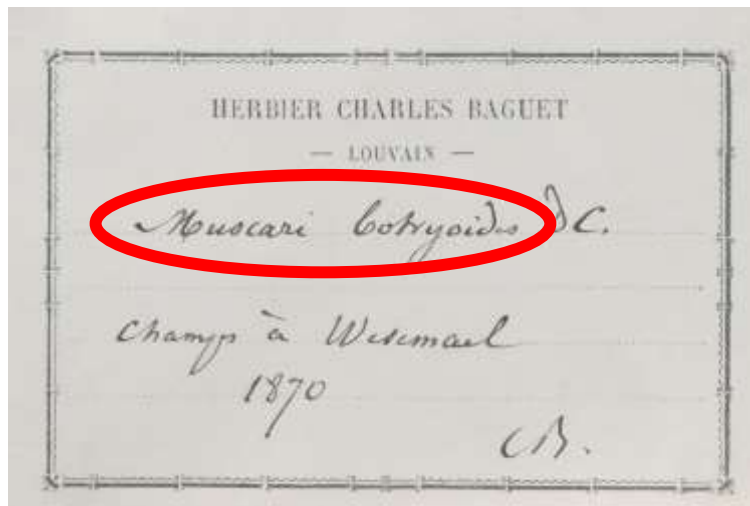 HERBIER CHARLES BAGUET
— LOUVAIN —
Muscari botryoides DC.
Champs à Wesemael
1870
CB.